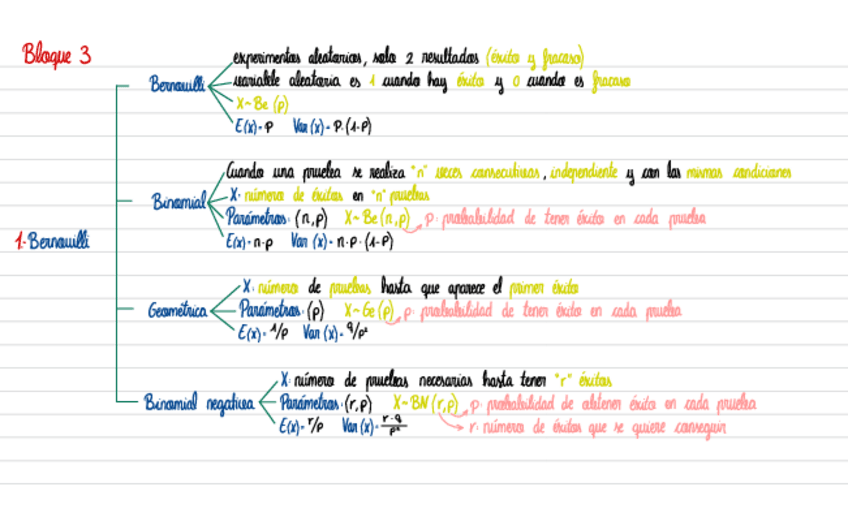 Bloque 3
1. Bernouilli
Bernouilli
experimentos aleatorios, solo 2 resultados (éxito y fracaso)
variable aleatoria es 1 cuando hay éxito y 0 cuando es fracaso
X~Be (p)
E(x)=p Var (x)= p.(1-p)
Binomial
Cuando una prueba se realiza "n" veces consecutivas, independiente y con las mismas condiciones
X: número de éxitos en "n" pruebas
Parámetros: (n,p) X~Be(n,p) p: probabilidad de tener éxito en cada prueba
E(x)=n·p Var (x)= n·p·(1-p)
Geométrica
X: número de pruebas hasta que aparece el primer éxito
Parámetros: (p) X~Ge(p) p: probabilidad de tener éxito en cada prueba
E(x)= 1/p Var (x)= q/p²
Binomial negativa
X: número de pruebas necesarias hasta tener "r" éxitos
Parámetros: (r,p) X~BN(r,p) p: probabilidad de obtener éxito en cada prueba
r: número de éxitos que se quiere conseguir
E(x)= r/p Var (x)= r·q/p²